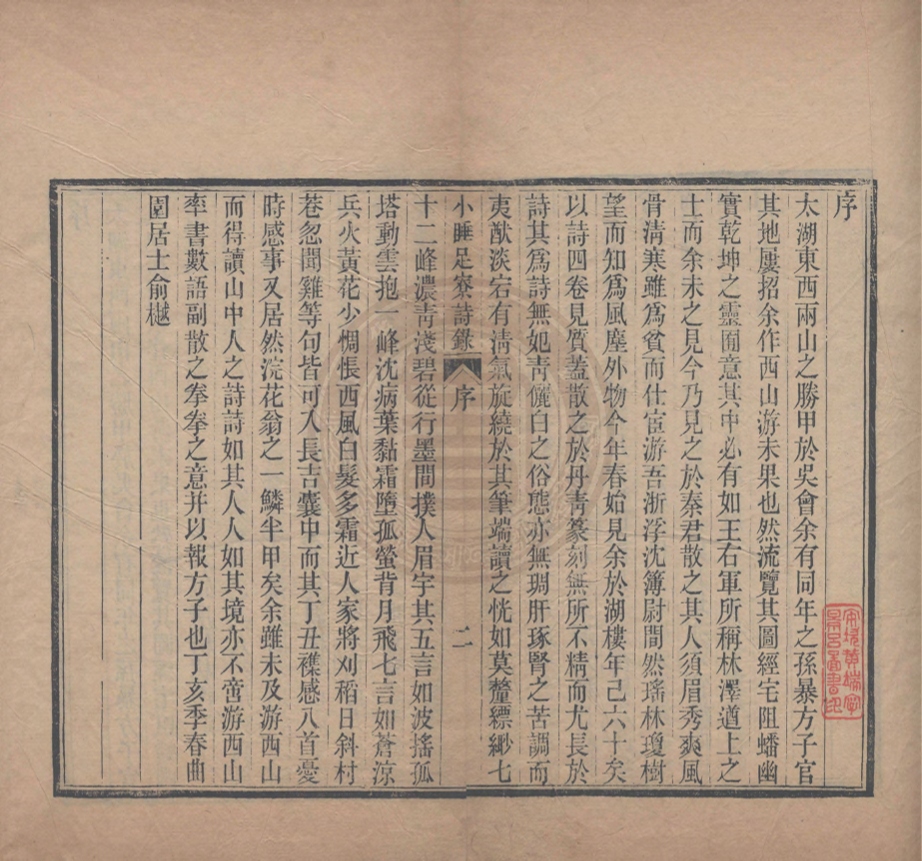 序
太湖東西兩山之勝甲於吳會余有同年之孫暴方子官
其地屢招余作西山游未果也然流覽其圖經宅阻蟠幽
實乾坤之靈囿意其中必有如王右軍所稱林澤道上之
士而余未之見今乃見之於秦君散之其人須眉秀爽風
骨清寒雖爲貧而仕宦游吾浙浮沈簿尉間然瑤林瓊樹
望而知爲風塵外物今年春始見余於湖樓年已六十矣
以詩四卷見質蓋散之於丹青篆刻無所不精而尤長於
詩其爲詩無妃青儷白之俗態亦無琱肝琢腎之苦調而
夷猷淡宕有清氣旋繞於其筆端讀之恍如莫釐縹緲七
小睡足寮詩錄 序 二
十二峰濃青淺碧從行墨間撲人眉宇其五言如波搖孤
塔動雲抱一峰沈病葉黏霜墮孤螢背月飛七言如蒼涼
兵火黃花少惆悵西風白髮多霜近人家將刈稻日斜村
巷忽聞雞等句皆可入長吉囊中而其丁丑襍感八首憂
時感事又居然浣花翁之一鱗半甲矣余雖未及游西山
而得讀山中人之詩詩如其人人如其境亦不啻游西山
率書數語副散之拳拳之意并以報方子也丁亥季春曲
園居士俞樾